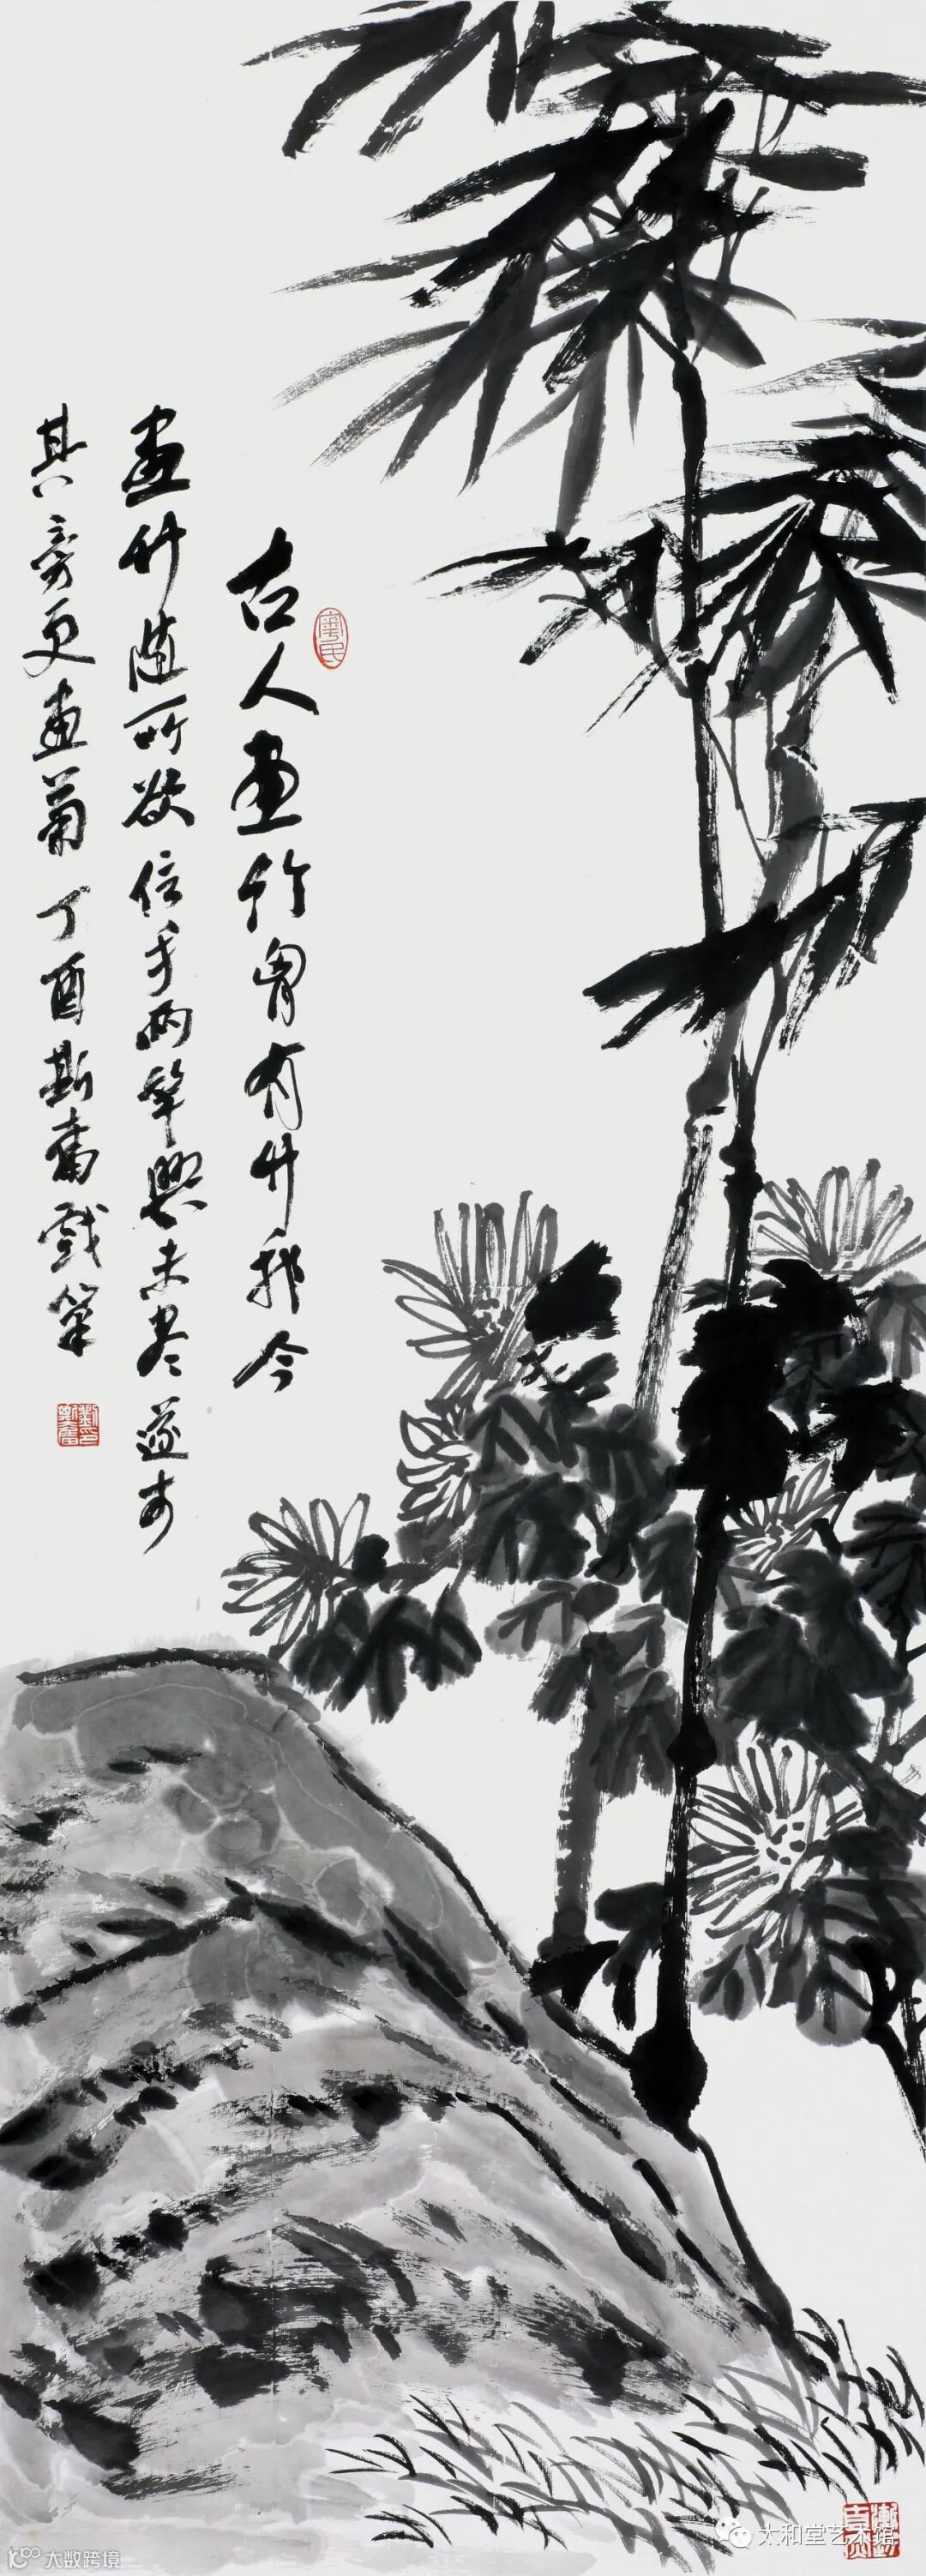 古人画竹胸有竹我今
画竹随所欲信手两笔兴未尽遂于
其旁更画菊丁酉斯奋戏笔
粤民
刘斯奋印
太和堂艺术馆
大数跨境